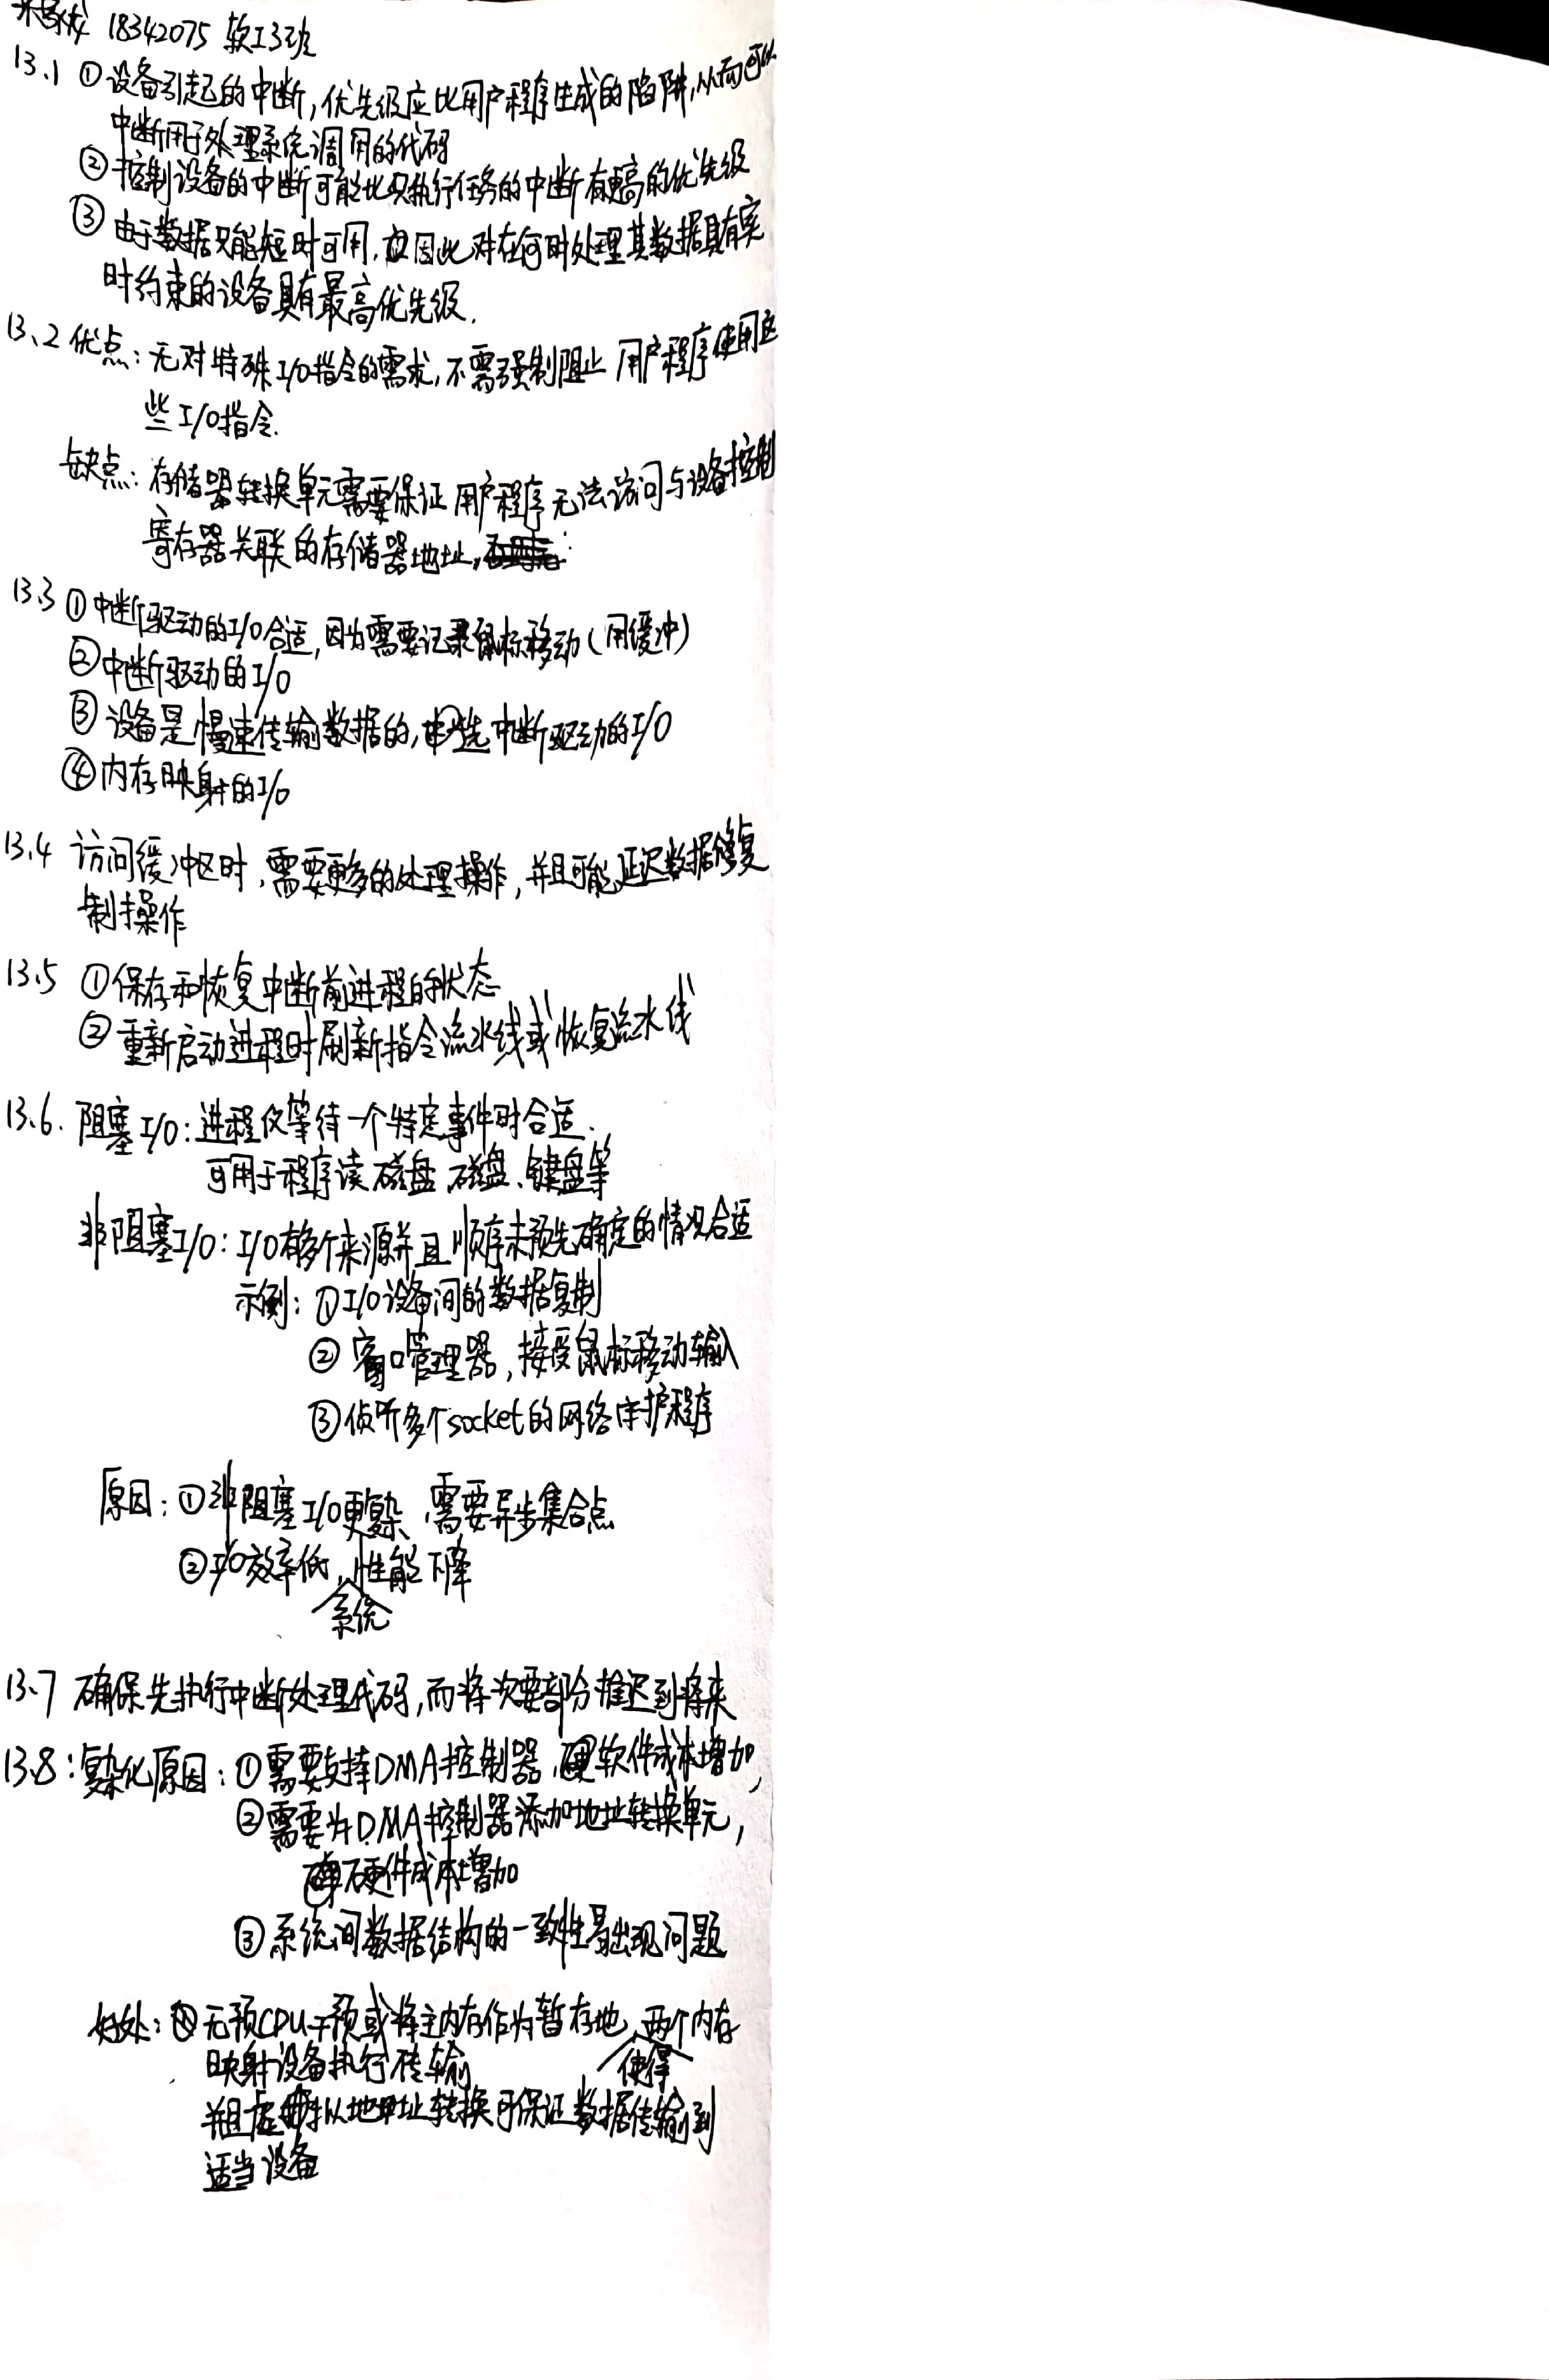 18342075 软工3班
13.1 ①设备引起的中断,优先级应比用户程序生成的陷阱,从而可以
中断用于处理系统调用的代码
②控制设备的中断可能比只执行任务的中断有更高的优先级
③由于数据只能短时可用,因此对在何时处理其数据具有实
时约束的设备具有最高优先级.
13.2 优点:无对特殊I/O指令的需求,不需强制阻止用户程序使用这
些I/O指令.
缺点:存储器转换单元需要保证用户程序无法访问与设备控制
寄存器关联的存储器地址,
13.3 ①中断驱动的I/O合适,因为需要记录鼠标移动(用缓冲)
②中断驱动的I/O
③设备是慢速传输数据的,选中断驱动的I/O
④内存映射的I/O
13.4 访问缓冲区时,需要更多的处理操作,并且可能延迟数据复
制操作
13.5 ①保存和恢复中断前进程的状态
②重新启动进程时刷新指令流水线或恢复流水线
13.6. 阻塞I/O:进程仅等待一个特定事件时合适.
可用于程序读磁盘、磁盘、键盘等
非阻塞I/O:I/O有多个来源并且顺序未预先确定的情况合适
示例:①I/O设备间的数据复制
②窗口管理器,接受鼠标移动输入
③侦听多个socket的网络守护程序
原因:①非阻塞I/O更复杂、需要异步集合点
②I/O效率低,系统性能下降
13.7 确保先执行中断处理代码,而将次要部分推迟到将来
13.8:复杂化原因:①需要支持DMA控制器,软件成本增加,
②需要为DMA控制器添加地址转换单元,
硬件成本增加
③系统间数据结构的一致性易出现问题
好处:无预CPU干预或将主内存作为暂存地使得两个内存
映射设备执行传输
并且虚拟地址转换可保证数据传输到
适当设备